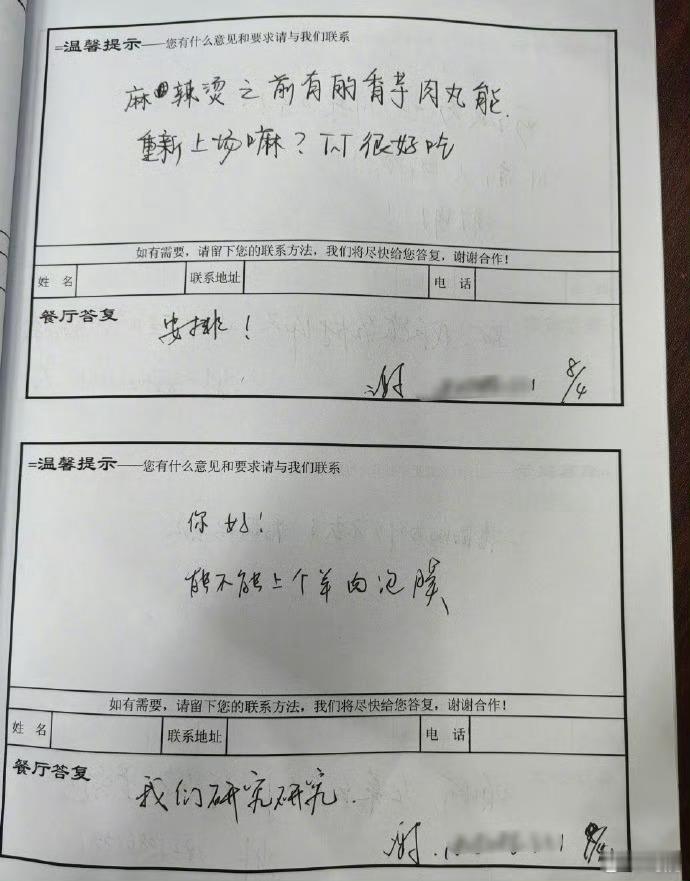 =温馨提示——您有什么意见和要求请与我们联系
麻辣烫之前有的香芋肉丸能
重新上场嘛？TT很好吃
如有需要，请留下您的联系方法，我们将尽快给您答复，谢谢合作！
姓 名 联系地址 电 话
餐厅答复
安排！
谢 8/4
=温馨提示——您有什么意见和要求请与我们联系
你好！
能不能上个羊肉泡膜
如有需要，请留下您的联系方法，我们将尽快给您答复，谢谢合作！
姓 名 联系地址 电 话
餐厅答复
我们研究研究.
谢